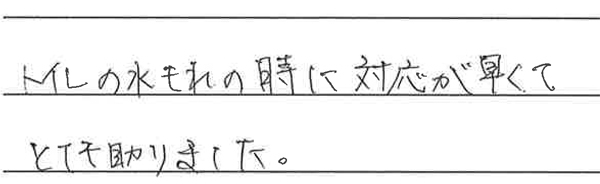 トイレの水もれの時に対応が早くて
とても助りました。